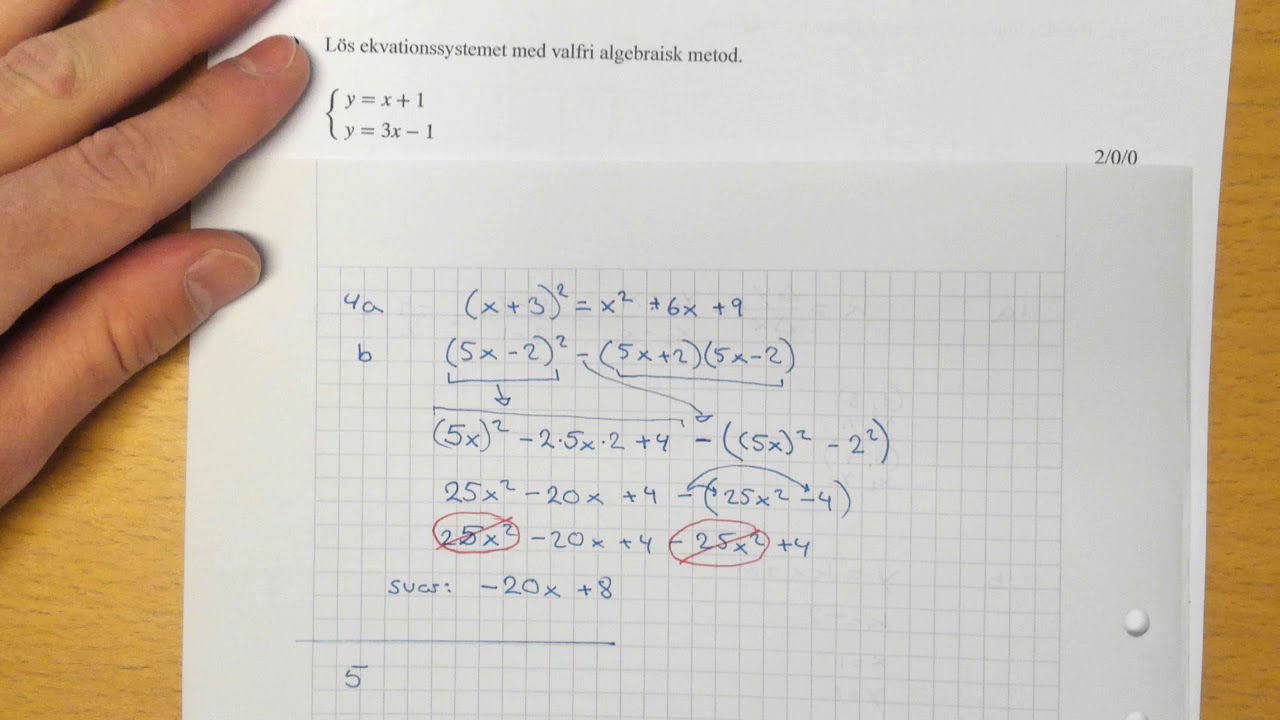 Lös ekvationssystemet med valfri algebraisk metod.
y = x + 1
y = 3x − 1
2/0/0
4a (x + 3)² = x² + 6x + 9
b (5x − 2)² − (5x + 2)(5x − 2)
(5x)² − 2·5x·2 + 4 − ((5x)² − 2²)
25x² − 20x + 4 − (25x² − 4)
25x² − 20x + 4 − 25x² + 4
svar: −20x + 8
5